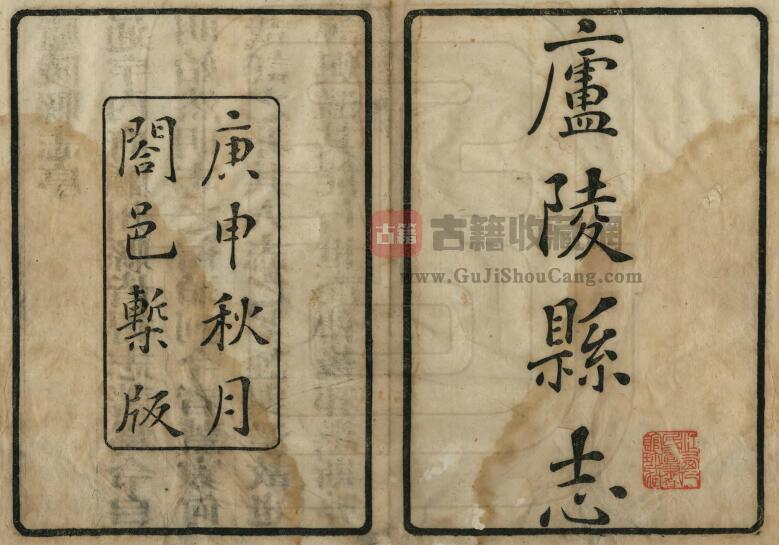 廬陵縣志
庚申秋月
閤邑槧版
古籍 古籍收藏網
www.GuJiShouCang.com